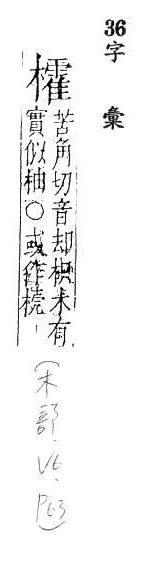 36
字彙
㰌
苦角切音却木有
實似柚○或作橈
(木部·V6·P63)